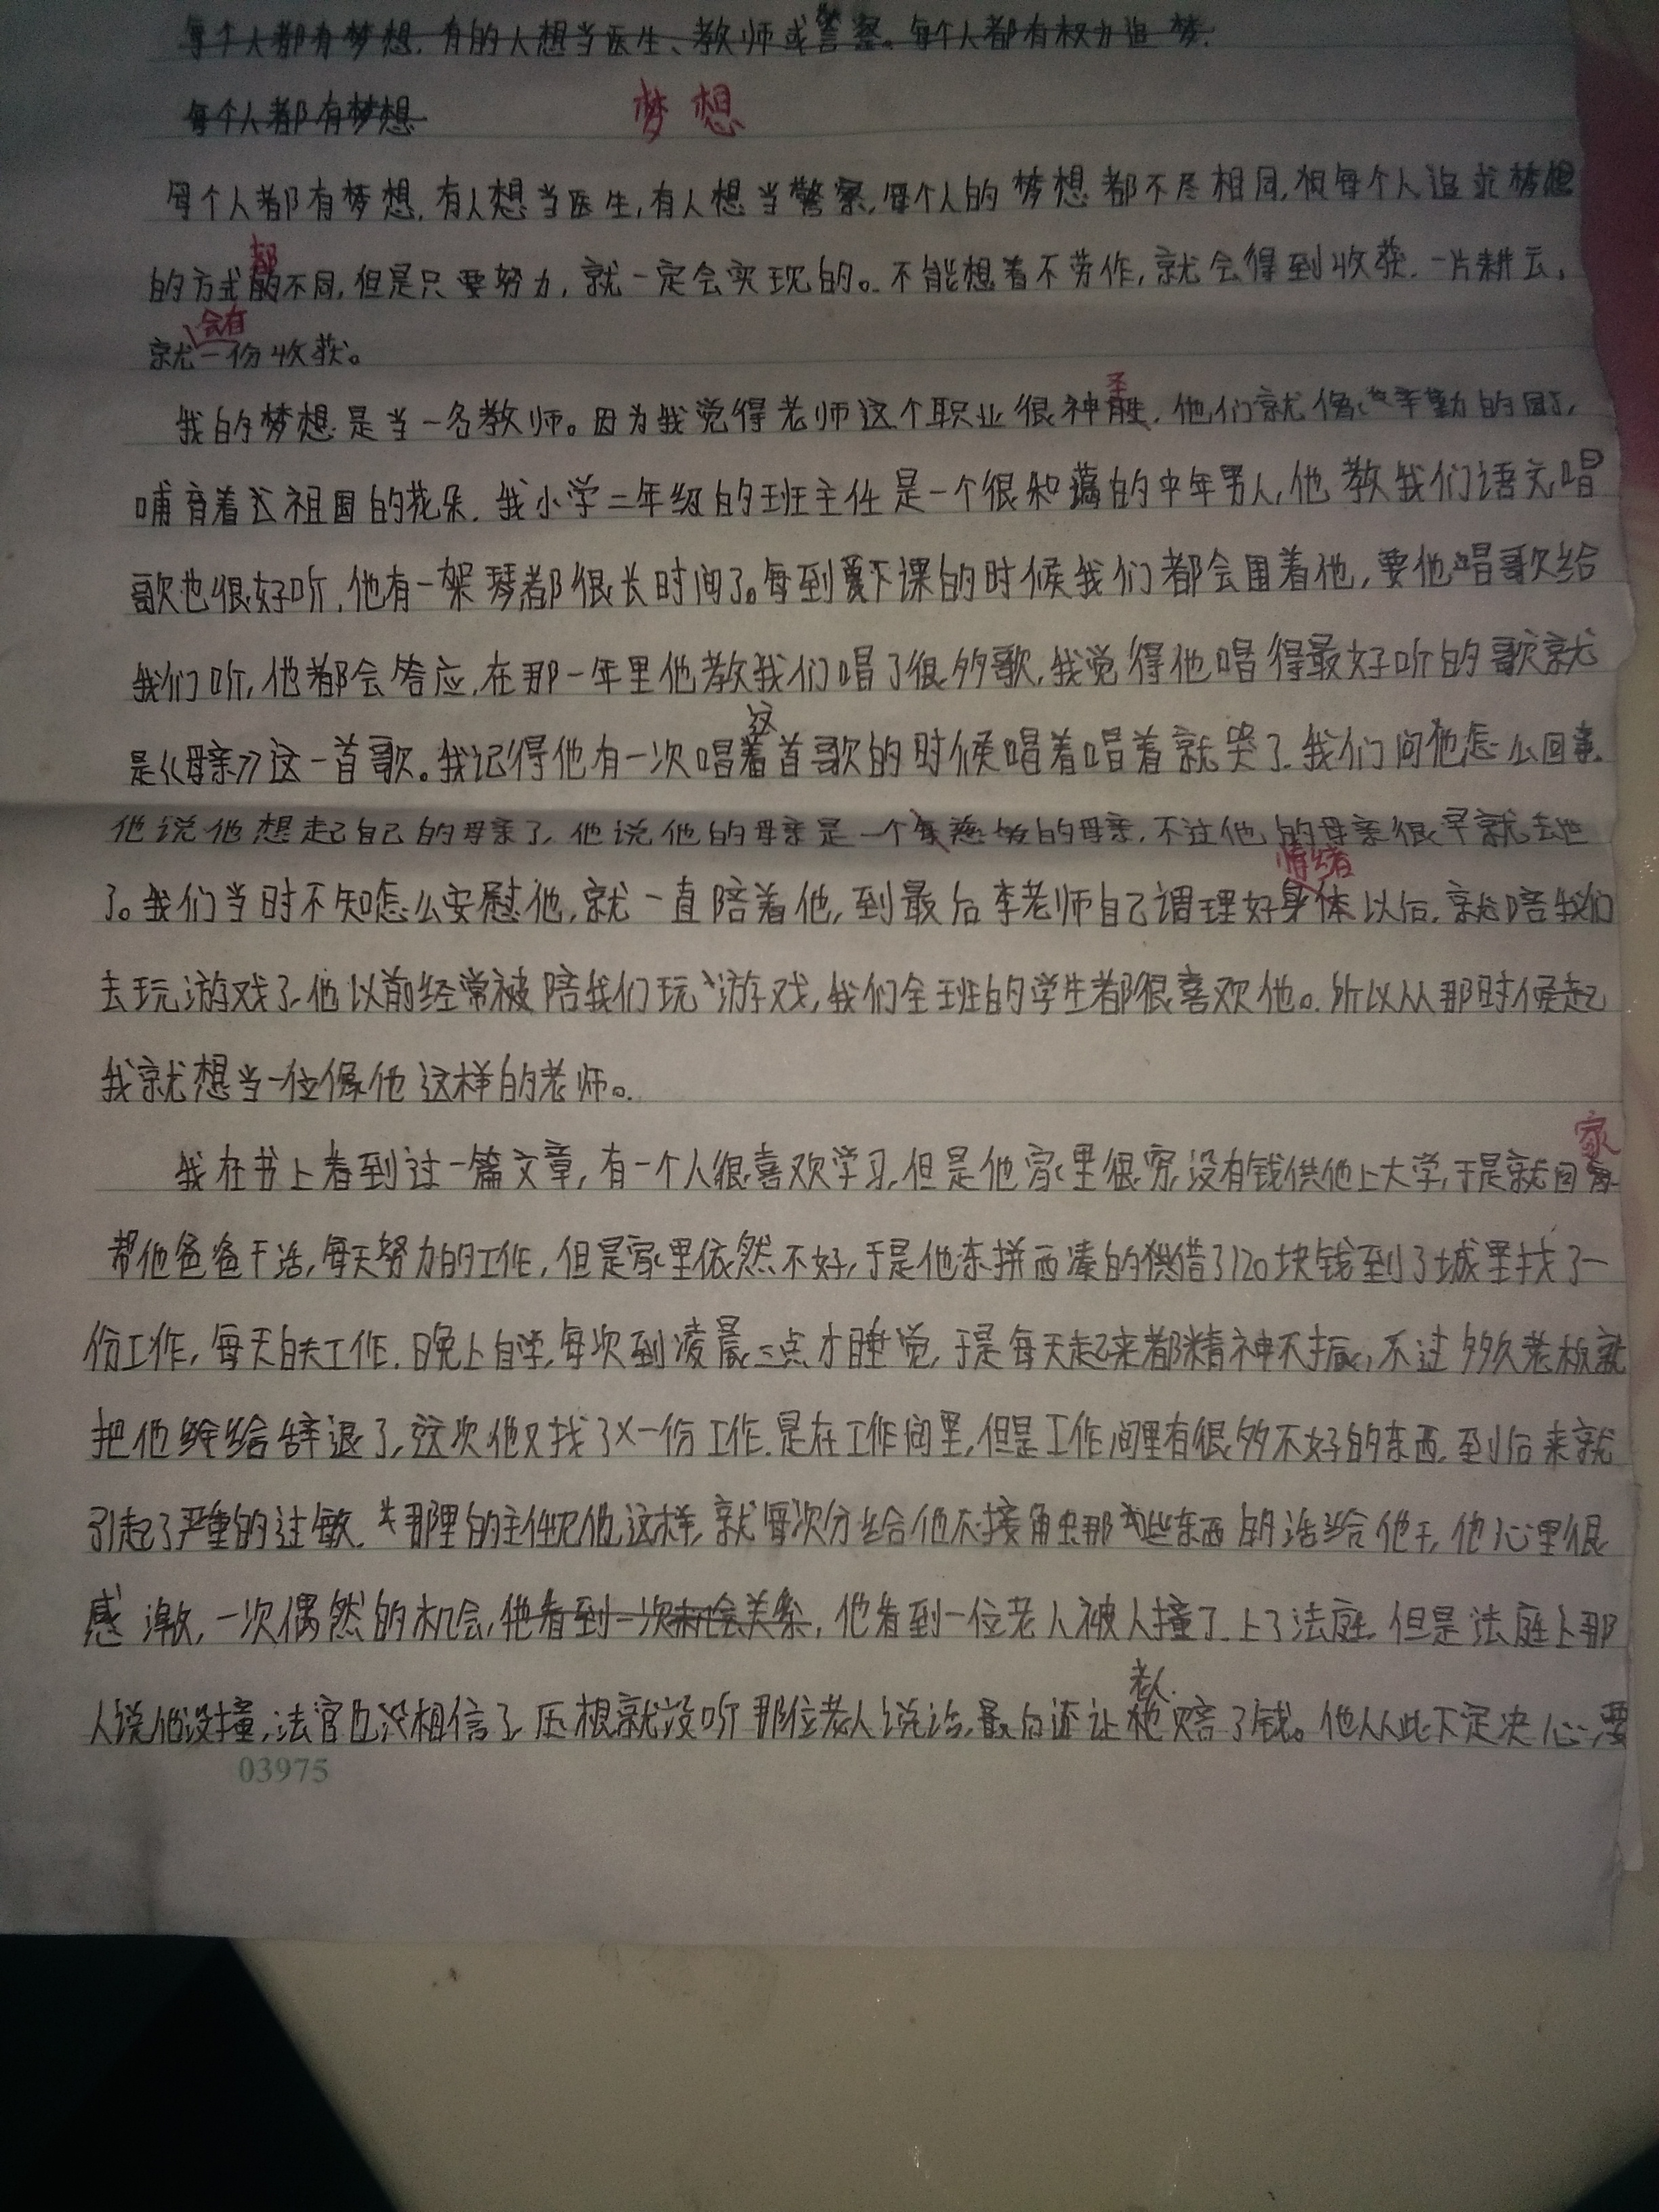 每个人都有梦想.有的人想当医生、教师或警察。每个人都有权力追 梦.
每个人都有梦想
梦想
每个人都有梦想.有人想当医生,有人想当警察,每个人的梦想都不尽相同,但每个人追求梦想
都
的方式的不同,但是只要努力,就一定会实现的。不能想着不劳作,就会得到收获.一片耕云,
会有
就一份收获。
圣
我的梦想是当一名教师。因为我觉得老师这个职业很神胜.他们就像辛勤的园丁,
哺育着祖国的花朵.我小学二年级的班主任是一个很和蔼的中年男人,他教我们语文,唱
歌也很好听,他有一架琴都很长时间了。每到下课的时候我们都会围着他,要他唱歌给
我们听,他都会答应.在那一年里他教我们唱了很多歌,我觉得他唱得最好听的歌就
这
是《母亲》这一首歌。我记得他有一次唱着首歌的时候唱着唱着就哭了.我们问他怎么回事.
他说他想起自己的母亲了,他说他的母亲是一个慈的母亲,不过他的母亲很早就去世
情绪
了。我们当时不知怎么安慰他,就一直陪着他,到最后李老师自己调理好身体以后,就陪我们
去玩游戏了.他以前经常被陪我们玩游戏,我们全班的学生都很喜欢他。所以从那时候起
我就想当一位像他这样的老师。
家
我在书上看到过一篇文章,有一个人很喜欢学习,但是他家里很穷,没有钱供他上大学,于是就回
帮他爸爸干活,每天努力的工作,但是家里依然不好,于是他东拼西凑的借了120块钱到了城里找了一
份工作,每天白天工作.晚上自学,每次到凌晨三点才睡觉,于是每天起来都精神不振,不过多久老板就
把他给辞退了,这次他又找了一份工作.是在工作间里,但是工作间里有很多不好的东西,到后来就
引起了严重的过敏.那里的主任见他这样,就每次分给他不接触那些东西的活给他干,他心里很
感激,一次偶然的机会,他看到一次机会关系,他看到一位老人被人撞了.上了法庭.但是法庭上那
老人
人说他没撞,法官也没相信了,压根就没听那位老人说话,最后还让他赔了钱。他从此下定决心,要
03975